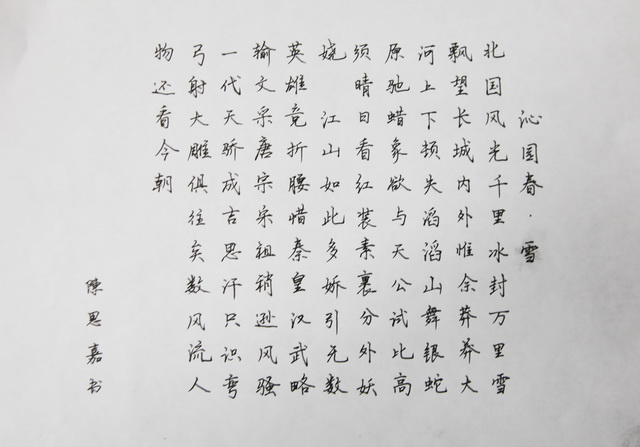 沁园春·雪
北国风光千里冰封万里雪
飘望长城内外惟余莽莽大
河上下顿失滔滔山舞银蛇
原驰蜡象欲与天公试比高
须晴日看红装素裹分外妖
娆 江山如此多娇引无数
英雄竞折腰惜秦皇汉武略
输文采唐宗宋祖稍逊风骚
一代天骄成吉思汗只识弯
弓射大雕俱往矣数风流人
物还看今朝
陳思嘉书